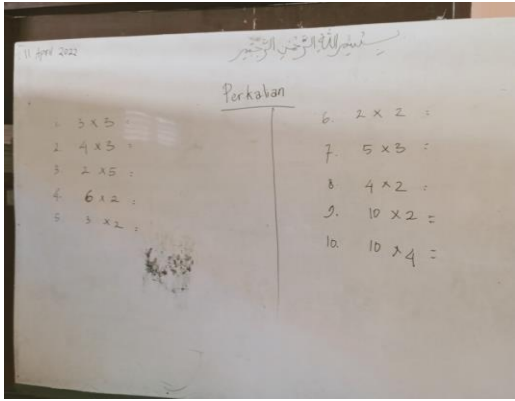 11 April 2022
بسم الله الرحمن الرحيم
Perkalian
1. 3 x 3 =
2. 4 x 3 =
3. 2 x 5 =
4. 6 x 2 =
5. 3 x 2 =
6. 2 x 2 =
7. 5 x 3 =
8. 4 x 2 =
9. 10 x 2 =
10. 10 x 4 =